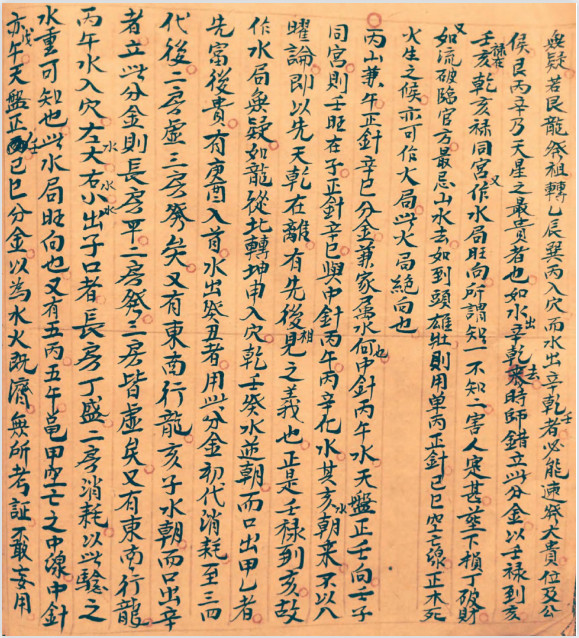 無疑若艮龍發祖轉乙辰巽丙入穴而水出辛乾者必能速發大貴位及公
侯艮丙辛乃天星之最貴者也如水出辛乾來去時師錯立此分金以壬祿到亥
壬祿在亥乾亥祿同宮又作水局旺向所謂知一不知二害人寔甚葬下損丁破財
又如流破臨官方最忌山水去如到頭雄壯則用单丙正針巳巳空亡線正木死
火生之候亦可作火局此火局絕向也
丙山兼午正針辛巳分金兼家屬水何也中針丙午水天盤正壬向壬子
同宮則壬旺在子正針辛巳與中針丙午丙辛化水其亥水朝來不以八
曜論即以先天乾在離有先後祖見之義也正是壬祿到亥故
作水局無疑如龍從北轉坤申入穴乾壬癸水並朝而口出甲乙者
先富後貴有庚酉入首水出癸丑者用此分金初代消耗至三四
代後二房虛三房發矣又有東南行龍亥子水朝而口出辛
者立此分金則長房平一房發二房皆虛矣又有東南行龍
丙午水入穴左水大右水小水出子口者長房丁盛二房消耗以此騐之
水重可知也此水局旺向也又有五丙五午龜甲空亡之中線中針
亦戊午天盤正壬巳巳分金以為水火既濟無所考証不敢妄用